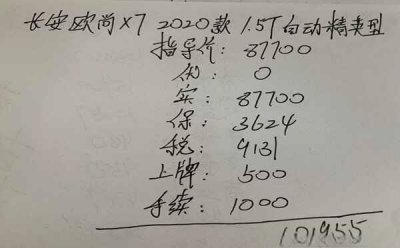 长安欧尚X7 2020款 1.5T自动精英型
指导价: 87700
优: 0
实: 87700
保: 3624
税: 9131
上牌: 500
手续: 1000
101955